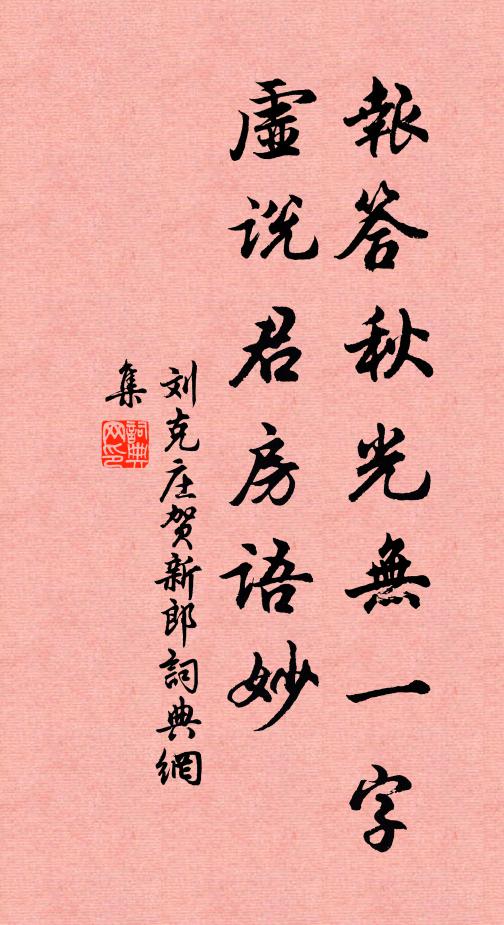 報答秋光無一字
虛説君房語妙
刘克庄贺新郎詞典網
集
詞典
网印